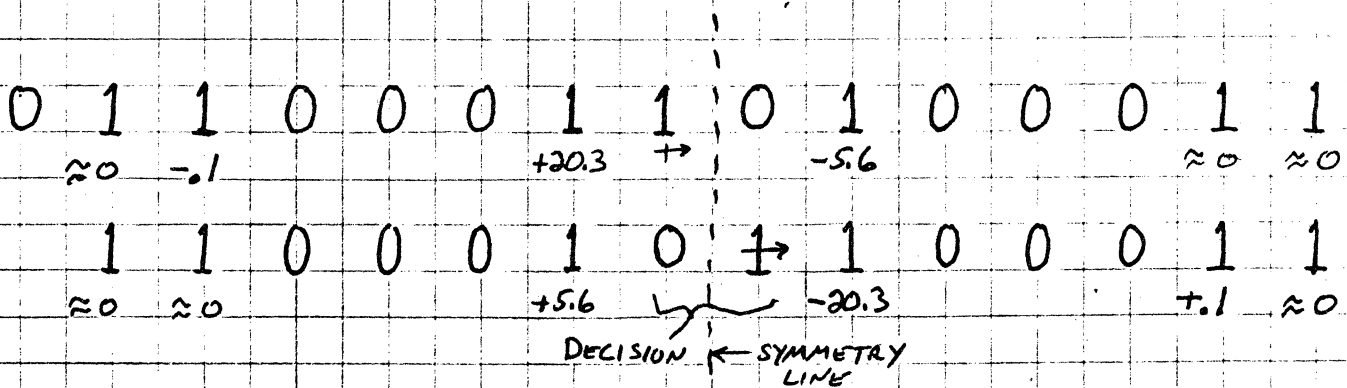 0 1 1 0 0 0 1 1 0 1 0 0 0 1 1
≈0 -.1 +20.3 +→ -5.6 ≈0 ≈0
1 1 0 0 0 1 0 1 1 0 0 0 1 1
≈0 ≈0 +5.6 -20.3 +.1 ≈0
DECISION ← SYMMETRY
LINE